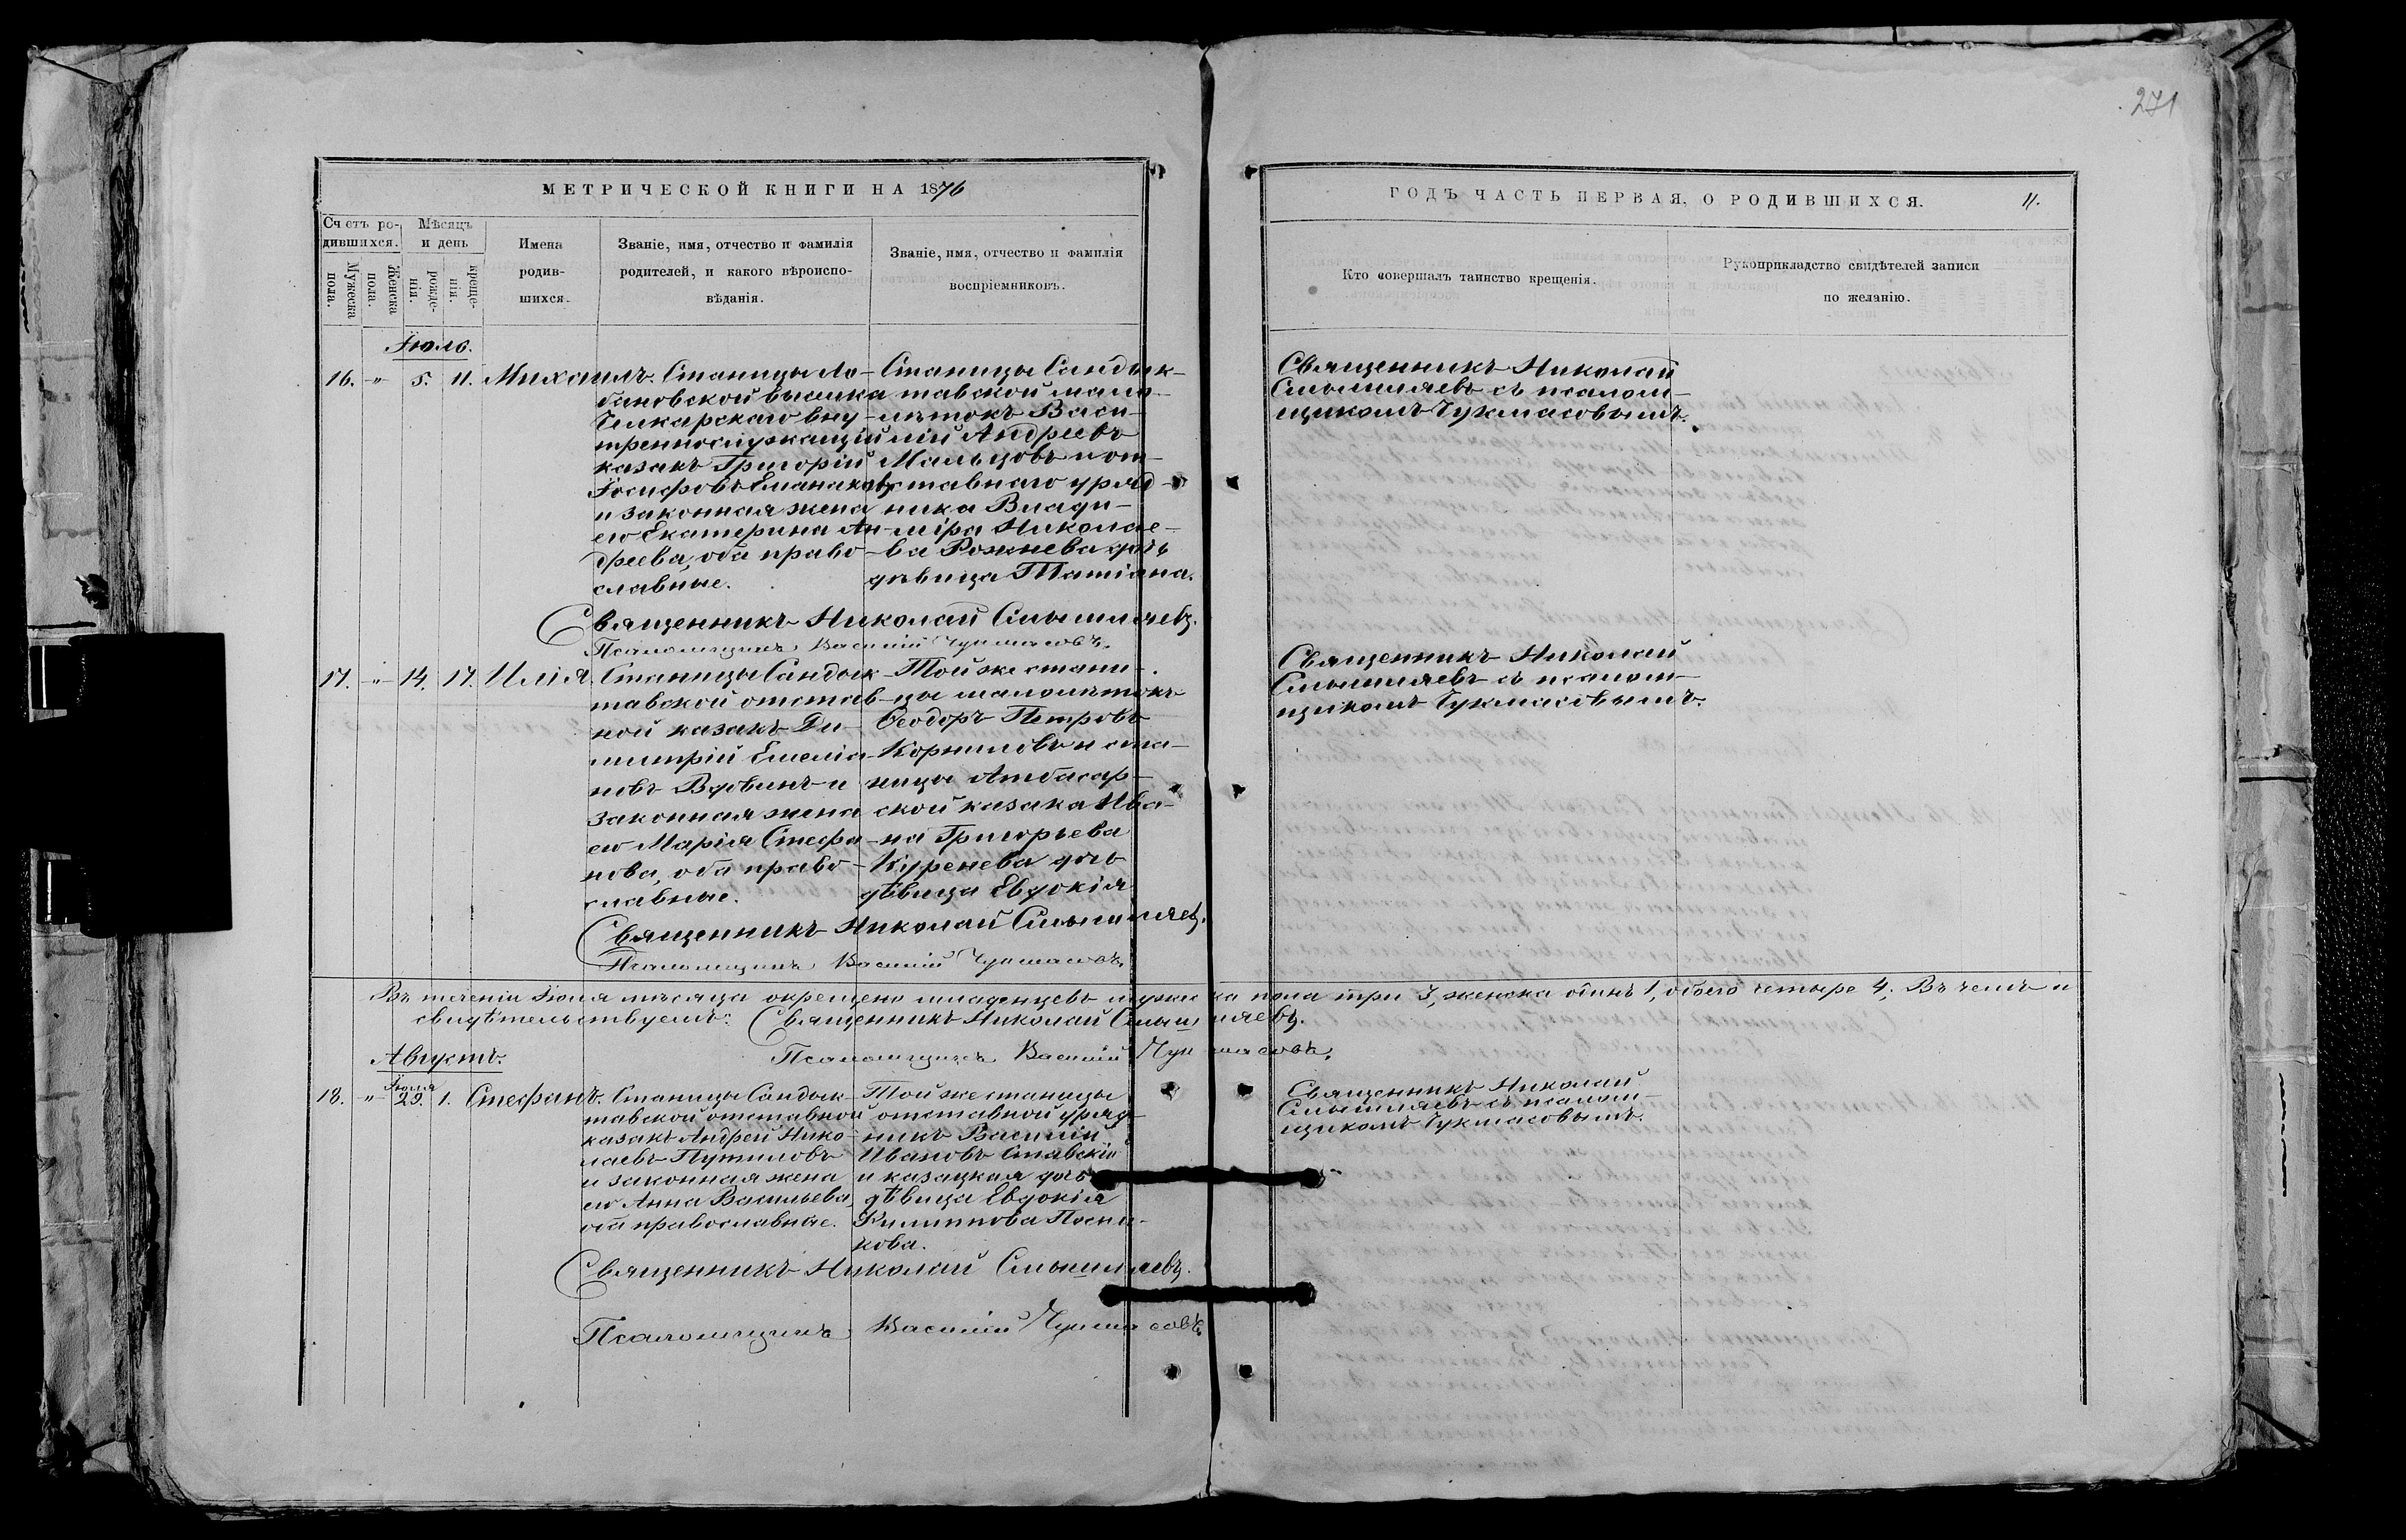 271
МЕТРИЧЕСКОЙ КНИГИ НА 1876
ГОДЪ ЧАСТЬ ПЕРВАЯ, О РОДИВШИХСЯ.
11.
Счетъ ро-
дившихся.
Мужеска пола.
Женска пола.
Мѣсяцъ
и день
рожде-
нія.
креще-
нія.
Имена
родив-
шихся.
Званіе, имя, отчество и фамилія
родителей, и какого вѣроиспо-
вѣданія.
Званіе, имя, отчество и фамилія
воспріемниковъ.
Кто совершалъ таинство крещенія.
Рукоприкладство свидѣтелей записи
по желанію.
Іюль.
16. " 5. 11. Михаилъ.
Станицы Ло-
бановской выселка
Чалкарскаго вну-
треннослужащій
казакъ Григорій
Іосифовъ
и законная жена
его Екатерина Ан-
дреева, оба право-
славные.
Станицы Сандык-
тавской мало-
лѣтокъ Васи-
лій Андреевъ
Мальцовъ и от-
ставнаго уряд-
ника Влади-
міра Николае-
ва Рожнева дочь
дѣвица Татіана.
Священникъ Николай
Смышляевъ съ псалом-
щикомъ Чукмасовымъ.
Священникъ Николай Смышляевъ.
Псаломщикъ Василій Чукмасовъ.
17. " 14. 17. Илія.
Станицы Сандык-
тавской отстав-
ной казакъ Ди-
митрій Емеліа-
новъ Вдовинъ и
законная жена
его Марія Стефа-
нова, оба право-
славные.
Той же стани-
цы малолѣтокъ
Ѳеодоръ Петровъ
Корниловъ и ста-
ницы Атбасар-
ской казака Ива-
на Григорьева
Куренева дочь
дѣвица Евдокія
Священникъ Николай
Смышляевъ съ псалом-
щикомъ Чукмасовымъ.
Священникъ Николай Смышляевъ.
Псаломщикъ Василій Чукмасовъ.
Въ теченіи Іюля мѣсяца окрещено младенцевъ мужеска пола три 3, женска одинъ 1, обоего четыре 4; Въ чемъ и
свидѣтельствуемъ: Священникъ Николай Смышляевъ.
Псаломщикъ Василій Чукмасовъ.
Августъ.
18. " Іюля 29. 1. Стефанъ.
Станицы Сандык-
тавской отставной
казакъ Андрей Нико-
лаевъ Путиловъ
и законная жена
его Анна Васильева,
оба православные.
Той же станицы
отставной уряд-
никъ Василій
Ивановъ Ставскій
и казацкая дочь
дѣвица Евдокія
Филиппова Посни-
кова.
Священникъ Николай
Смышляевъ съ псалом-
щикомъ Чукмасовымъ.
Священникъ Николай Смышляевъ.
Псаломщикъ Василій Чукмасовъ.